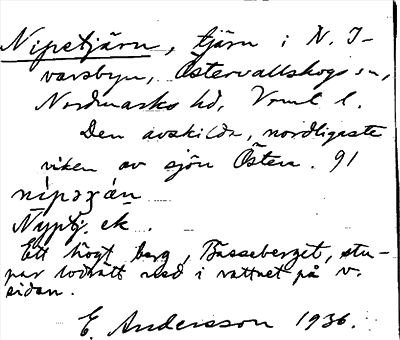 Nipetjärn, tjärn i N. I-
varsbyn, Östervallskogs sn,
Nordmarks hd, Vrml l.
Den avskilda, nordligaste
viken av sjön Östen. 91
nípəʒán
Nyptj. ek.
Ett högt berg, Basseberget, stu-
par lodrätt ned i vattnet på v.
sidan.
E. Andersson 1936.